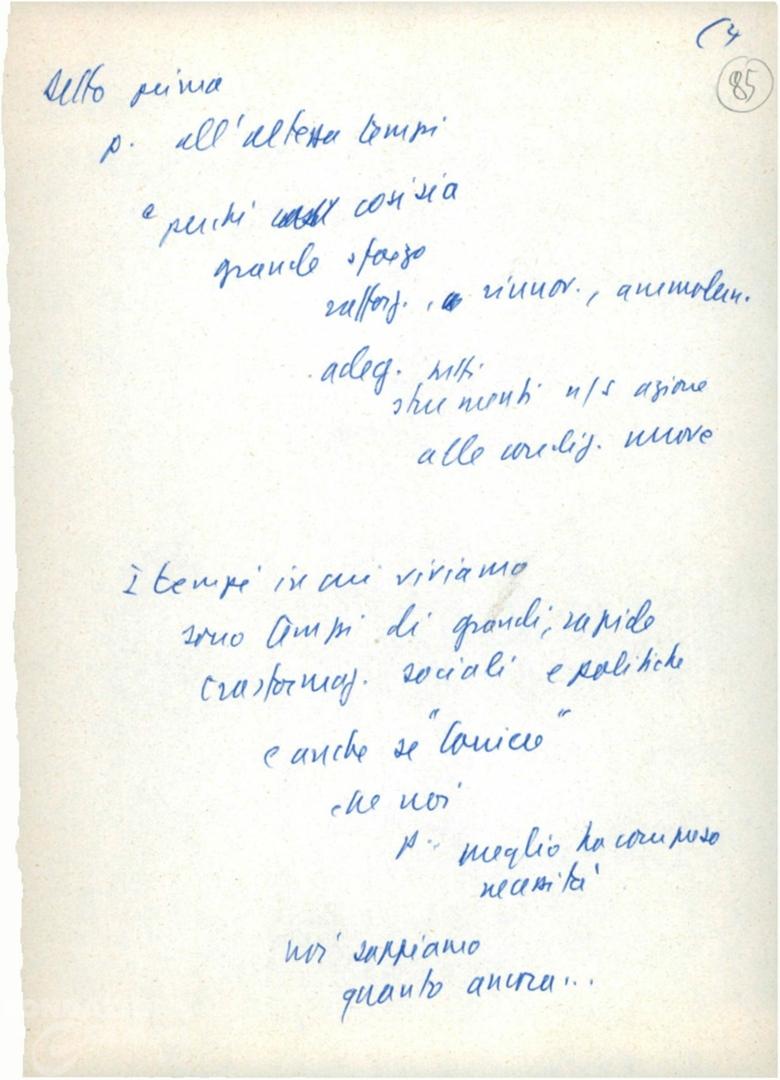 (4
85
detto prima
p. all'altezza tempi
e perché così sia
grande sforzo
rafforz., rinnov., ammodern.
adeg. tutti
strumenti n/s azione
alle condiz. nuove
I tempi in cui viviamo
sono tempi di grandi, rapide
trasformaz. sociali e politiche
e anche se "
che noi
p. meglio ha compreso
necessità
noi sappiamo
quanto ancora...